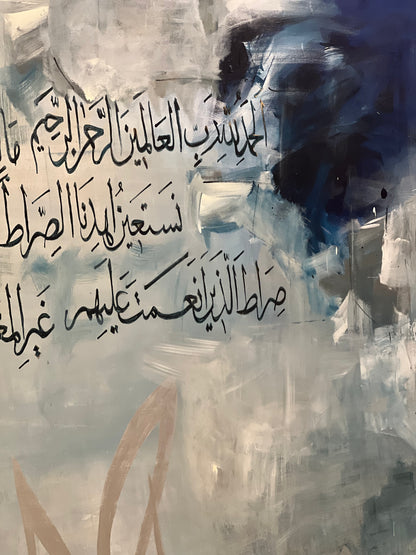 الحمد لله رب العالمين الرحمن الرحيم
نستعين اهدنا الصراط
صراط الذين انعمت عليهم غير